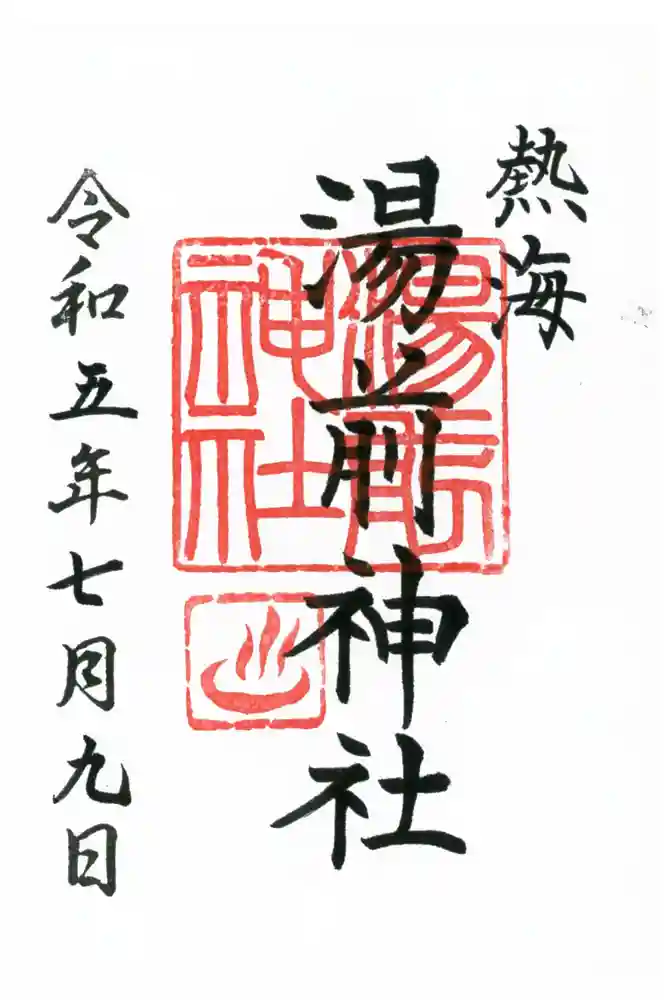 熱海
湯前神社
湯前神社
令和五年七月九日